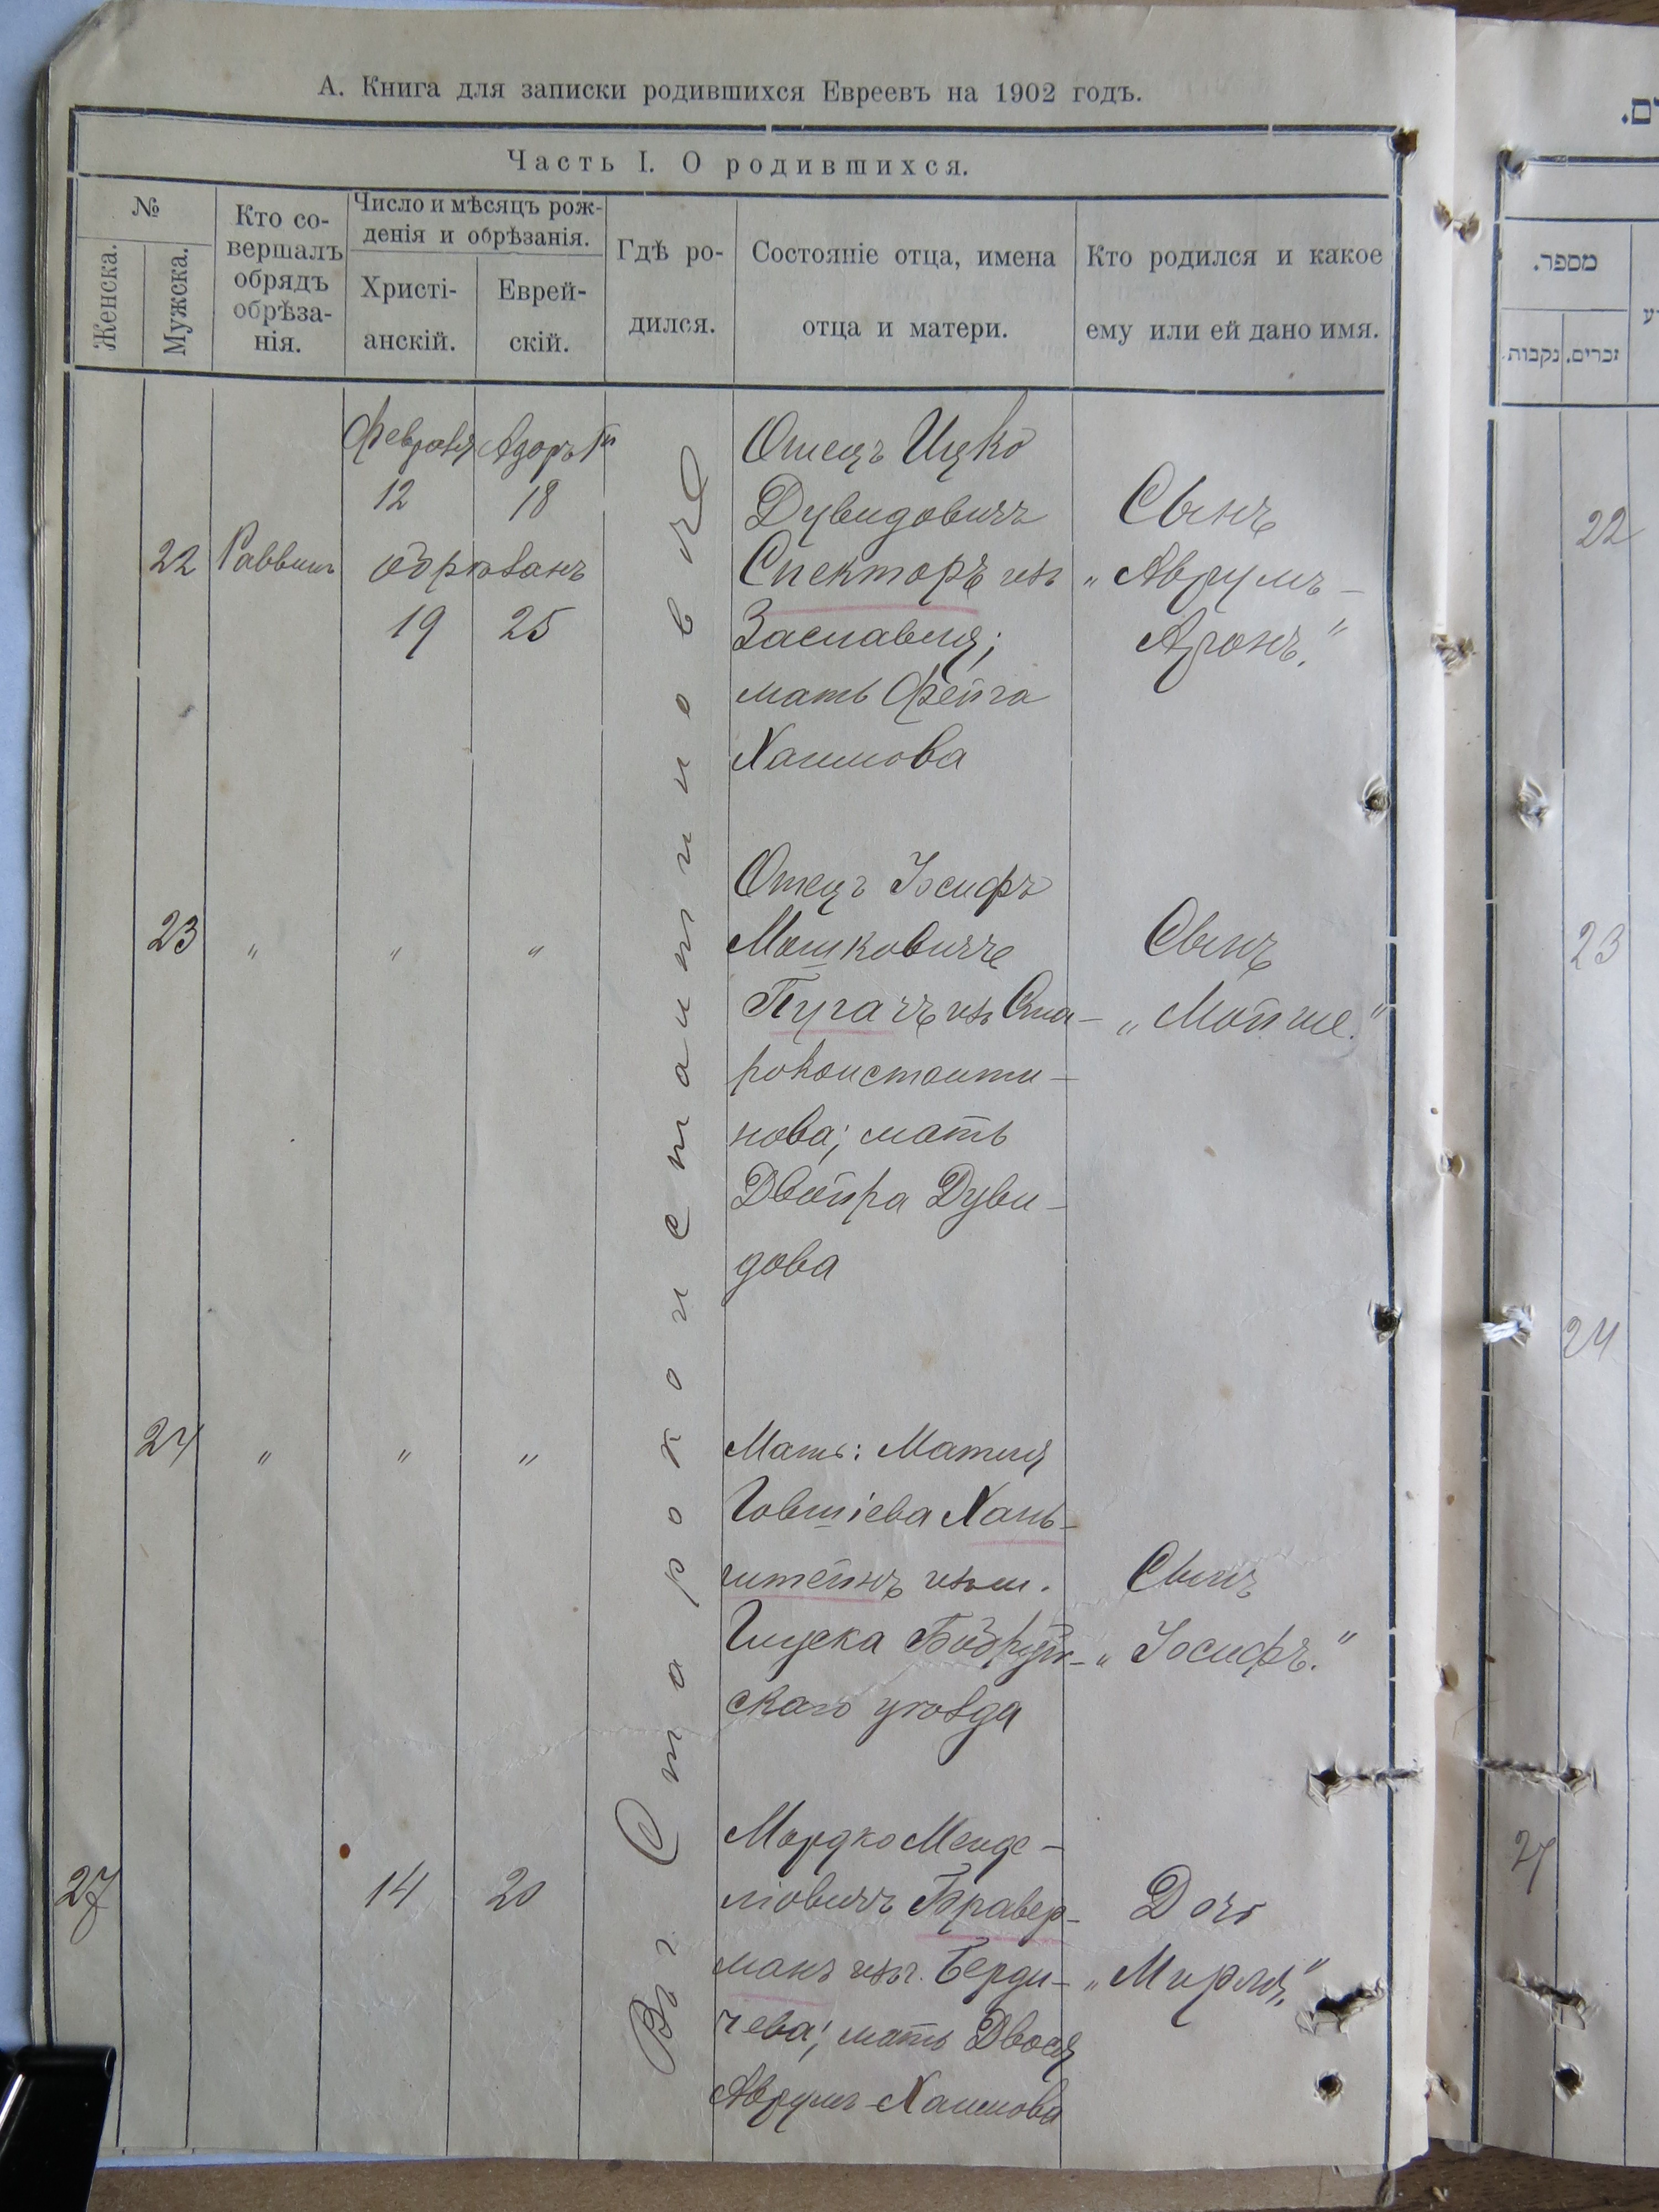 А. Книга для записки родившихся Евреевъ на 1902 годъ.
Часть I. О родившихся.
№
Женска.
Мужска.
Кто со-
вершалъ
обрядъ
обрѣза-
нія.
Число и мѣсяцъ рож-
денія и обрѣзанія.
Христі-
анскій.
Еврей-
скій.
Гдѣ ро-
дился.
Состояніе отца, имена
отца и матери.
Кто родился и какое
ему или ей дано имя.
Въ г. Староконстантиновѣ
22
Раввинъ
Февраля
12
обрѣзанъ
19
Адоръ Iй
18
25
Отецъ Ицко
Дувидовичъ
Спекторъ изъ
Заславля;
мать Фейга
Хаимова
Сынъ
„Аврумъ-
Аронъ."
23
"
"
"
Отецъ Іосифъ
Мошковичъ
Пугачъ изъ Ста-
роконстанти-
нова; мать
Двойра Дуви-
дова
Сынъ
„Мойше."
24
"
"
"
Мать: Матля
Говшіева Хань-
штейнъ изъ м.
Глуска Бобруй-
скаго уѣзда
Сынъ
„Іосифъ."
27
14
20
Мордко Менде-
ліовичъ Бравер-
манъ изъ г. Берди-
чева; мать Двося
Аврумъ-Хаимова
Дочь
„Мирля."
ם.
מספר.
זכרים.
נקבות
22
23
24
27